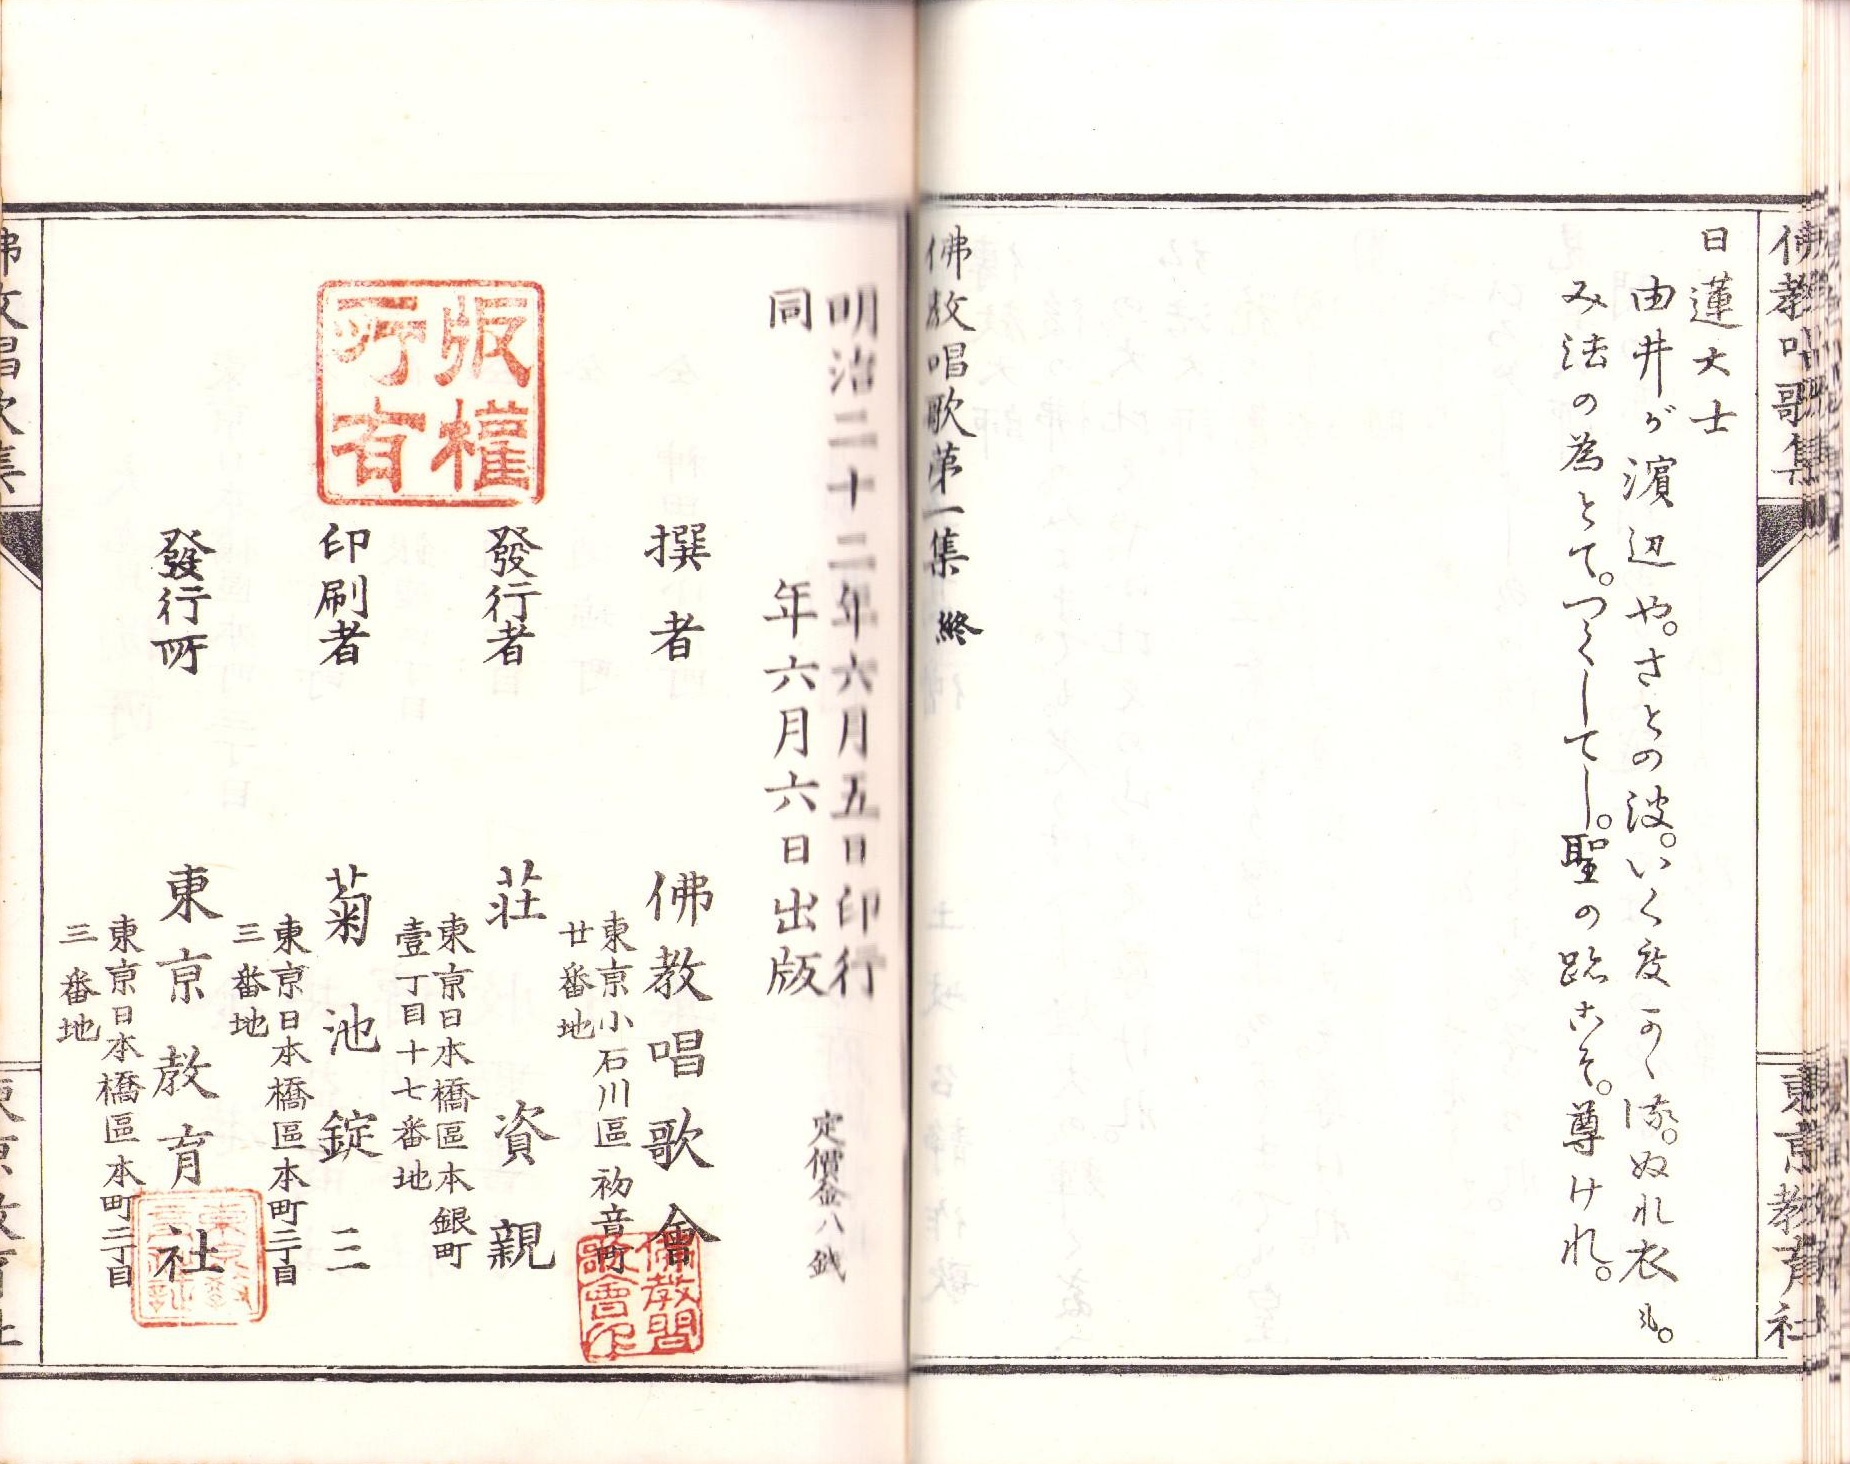 佛教唱歌集
東京教育社
日蓮大士
由井が濱辺や。さとの波。いく度か、ぬれ衣
み法の為とて。つくしてし。聖の跡こそ。尊けれ。
佛教唱歌第一集 終
明治二十二年六月五日印行
同 年六月六日出版
定價金八銭
撰者
東京小石川區初音町
廿番地
佛教唱歌會
發行者
東京日本橋區本銀町
壹丁目十七番地
荘資親
印刷者
東京日本橋區本町二丁目
三番地
菊池錠三
發行所
東京日本橋區本町二丁目
三番地
東京教育社
版權
所有
佛教唱歌集
東京教育社